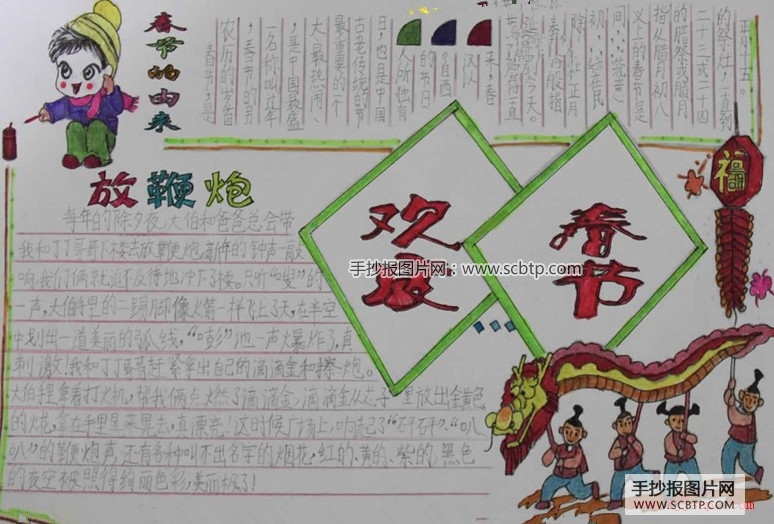 春节的由来
春节,是
农历的岁首
,春节的另
一名称叫过年
,是中国最盛
大、最热闹、
最重要的一个
古老传统的节
日,也是中国
人所独有
的节日
。自西
汉以
来,春
正月十五。
的祭灶,一直到
二十三或二十四
的腊祭或腊月
指从腊月初八
义上的春节是
初,在民
放鞭炮
每年的除夕夜,大伯和爸爸总会带
我和丁丁哥哥下楼去放鞭炮。新年的钟声一敲
响,我们俩就迫不及待地冲下了楼。只听“嗖”的
一声,大伯手里的二踢脚像火箭一样飞上了天,在半空
中划出一道美丽的弧线,“嘭”地一声火爆炸了,真
刺激!我和丁丁哥哥赶紧拿出自己的滴滴金和擦炮。
大伯拿着打火机,帮我俩点燃了滴滴金,滴滴金从芯子里放出金黄色
的火花,拿在手里晃来晃去,真漂亮!这时候广场上,响起了“砰砰”,“叭
叭”的鞭炮声,还有各种叫不出名字的烟花,红的、黄的、紫的,黑色
的夜空被照得绚丽色彩,美丽极了!
欢度
春节
福
手抄报图片网:www.scbtp.com
手抄报图片网
WWW.SCBTP.COM